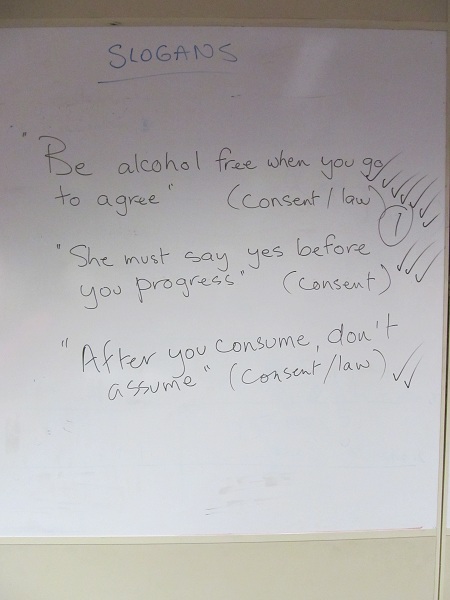 SLOGANS
"Be alcohol free when you go
to agree" (Consent/law)
1
"She must say yes before
you progress" (Consent)
"After you consume, don't
assume" (Consent/law)